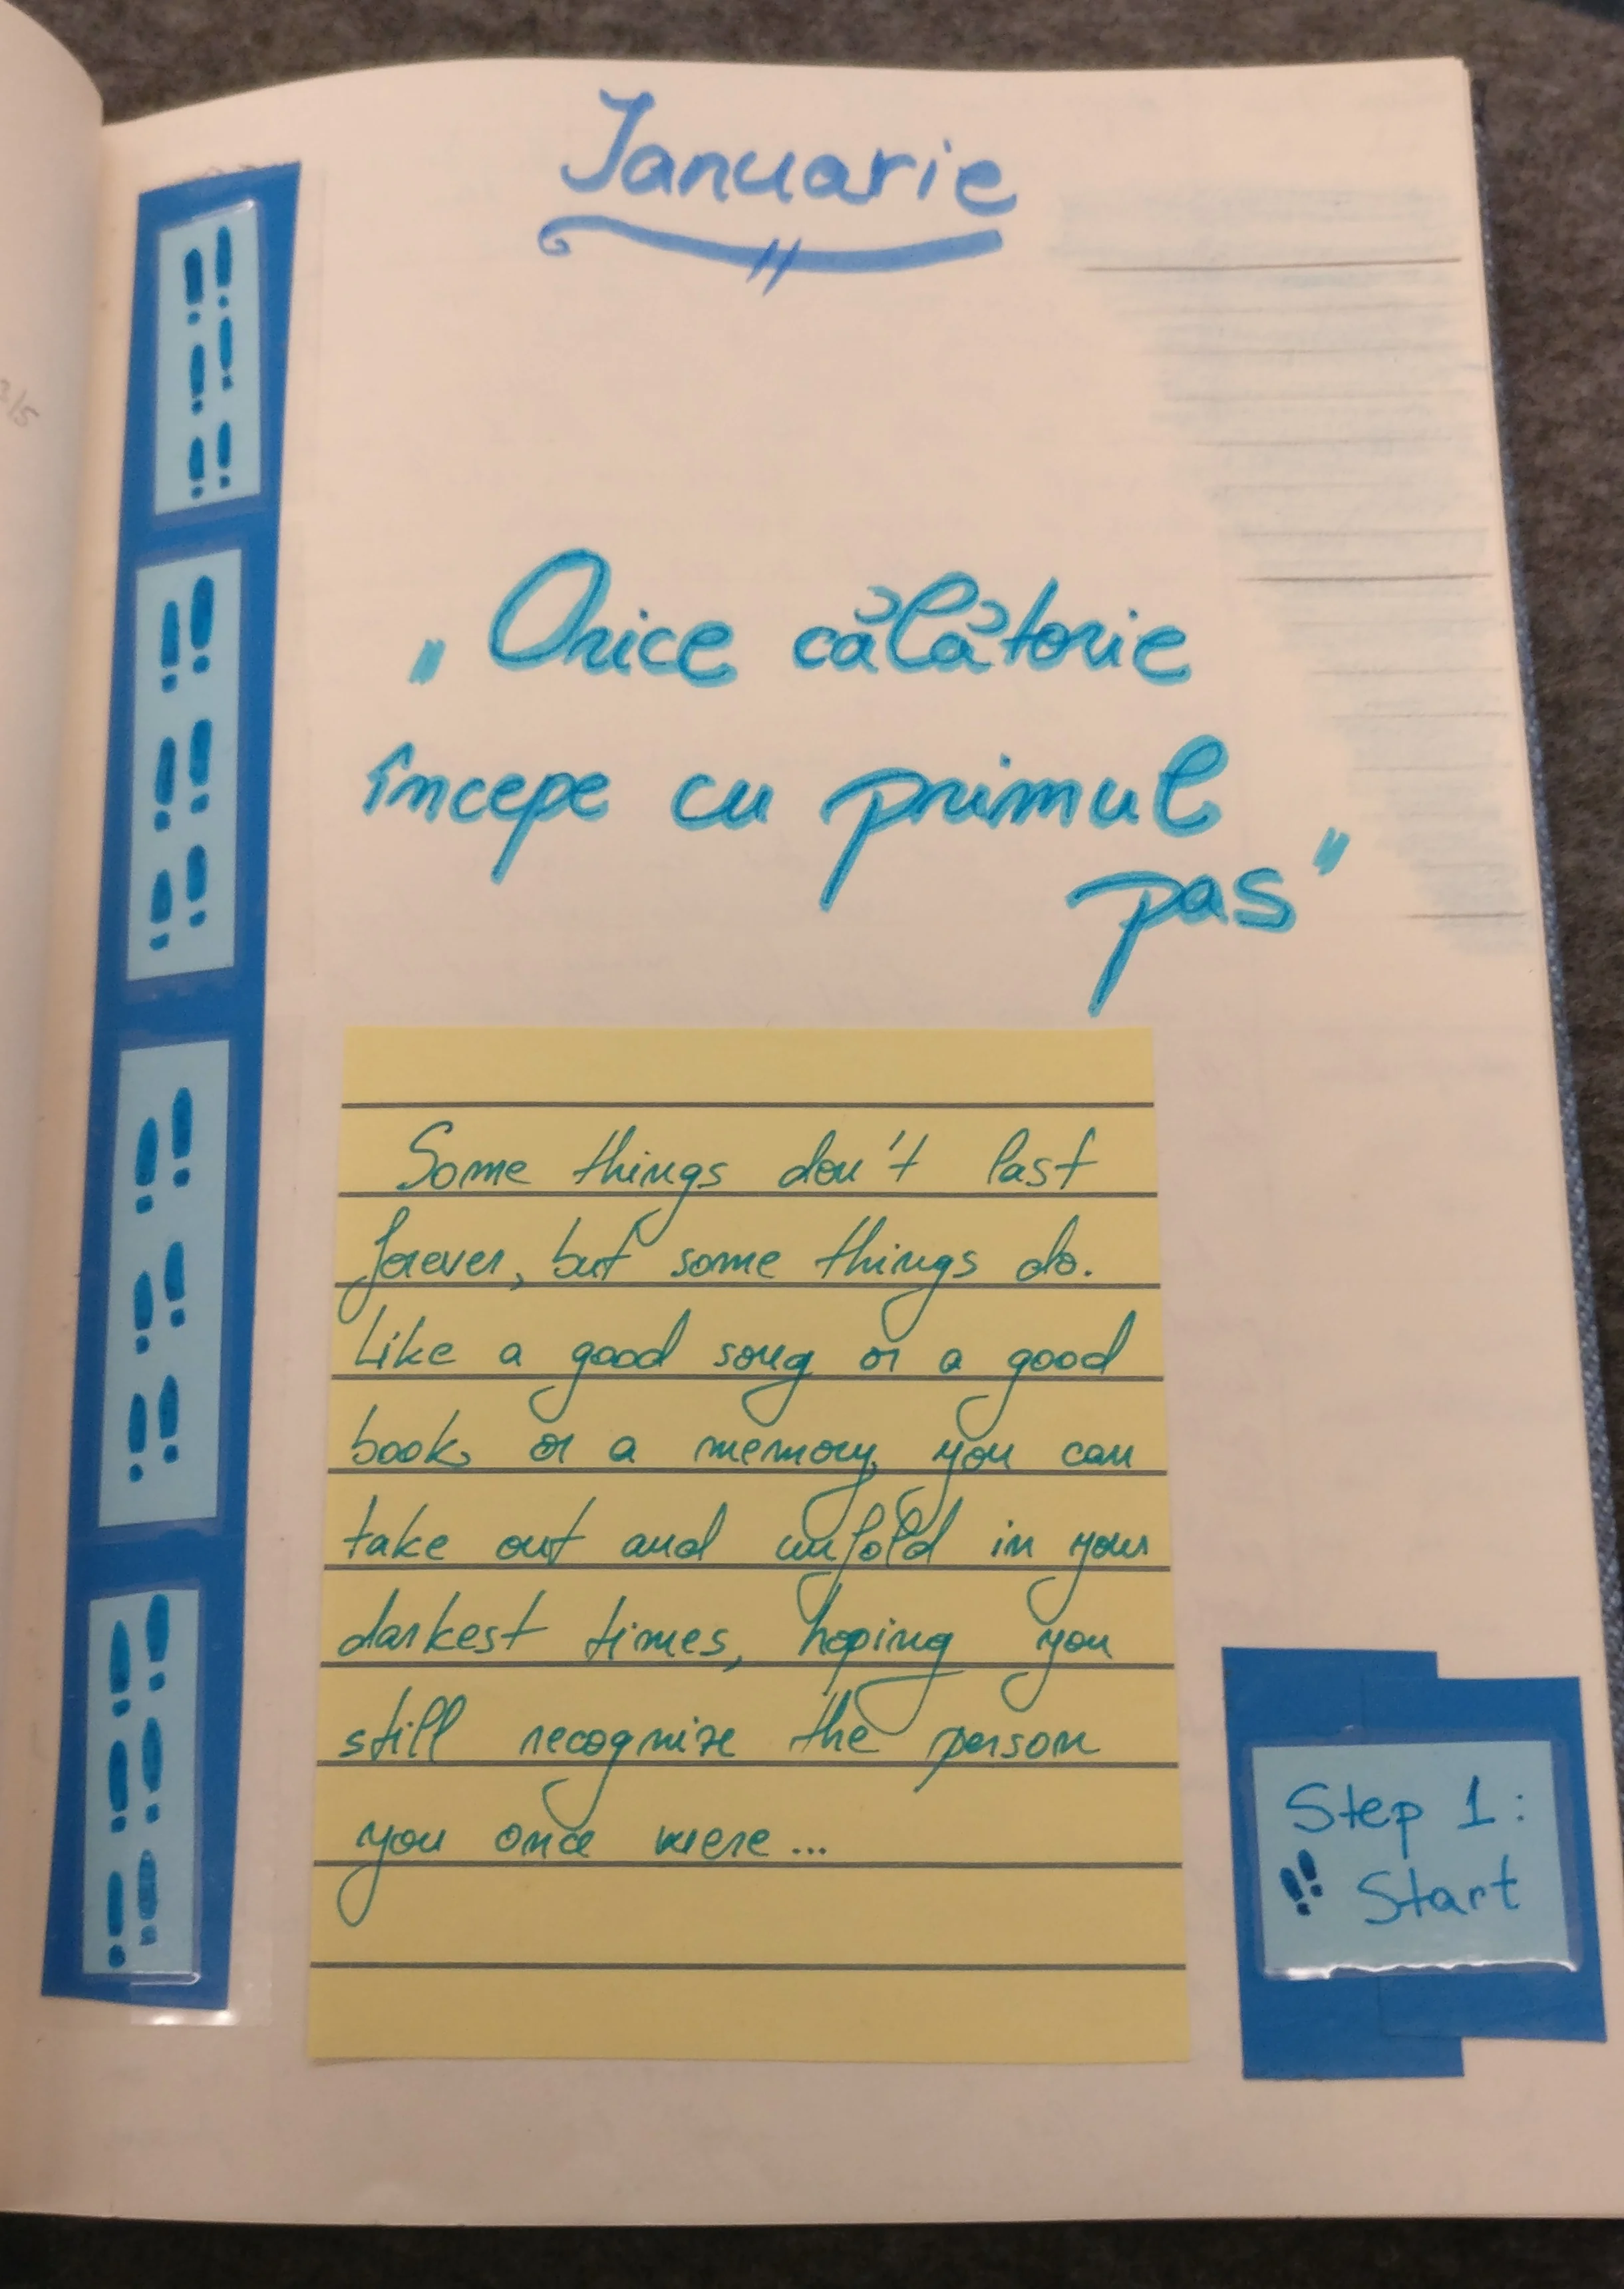 Ianuarie
„Orice călătorie
începe cu primul
pas”
Some things don't last
forever, but some things do.
Like a good song or a good
book or a memory, you can
take out and unfold in your
darkest times, hoping you
still recognize the person
you once were...
Step 1:
Start
3/5